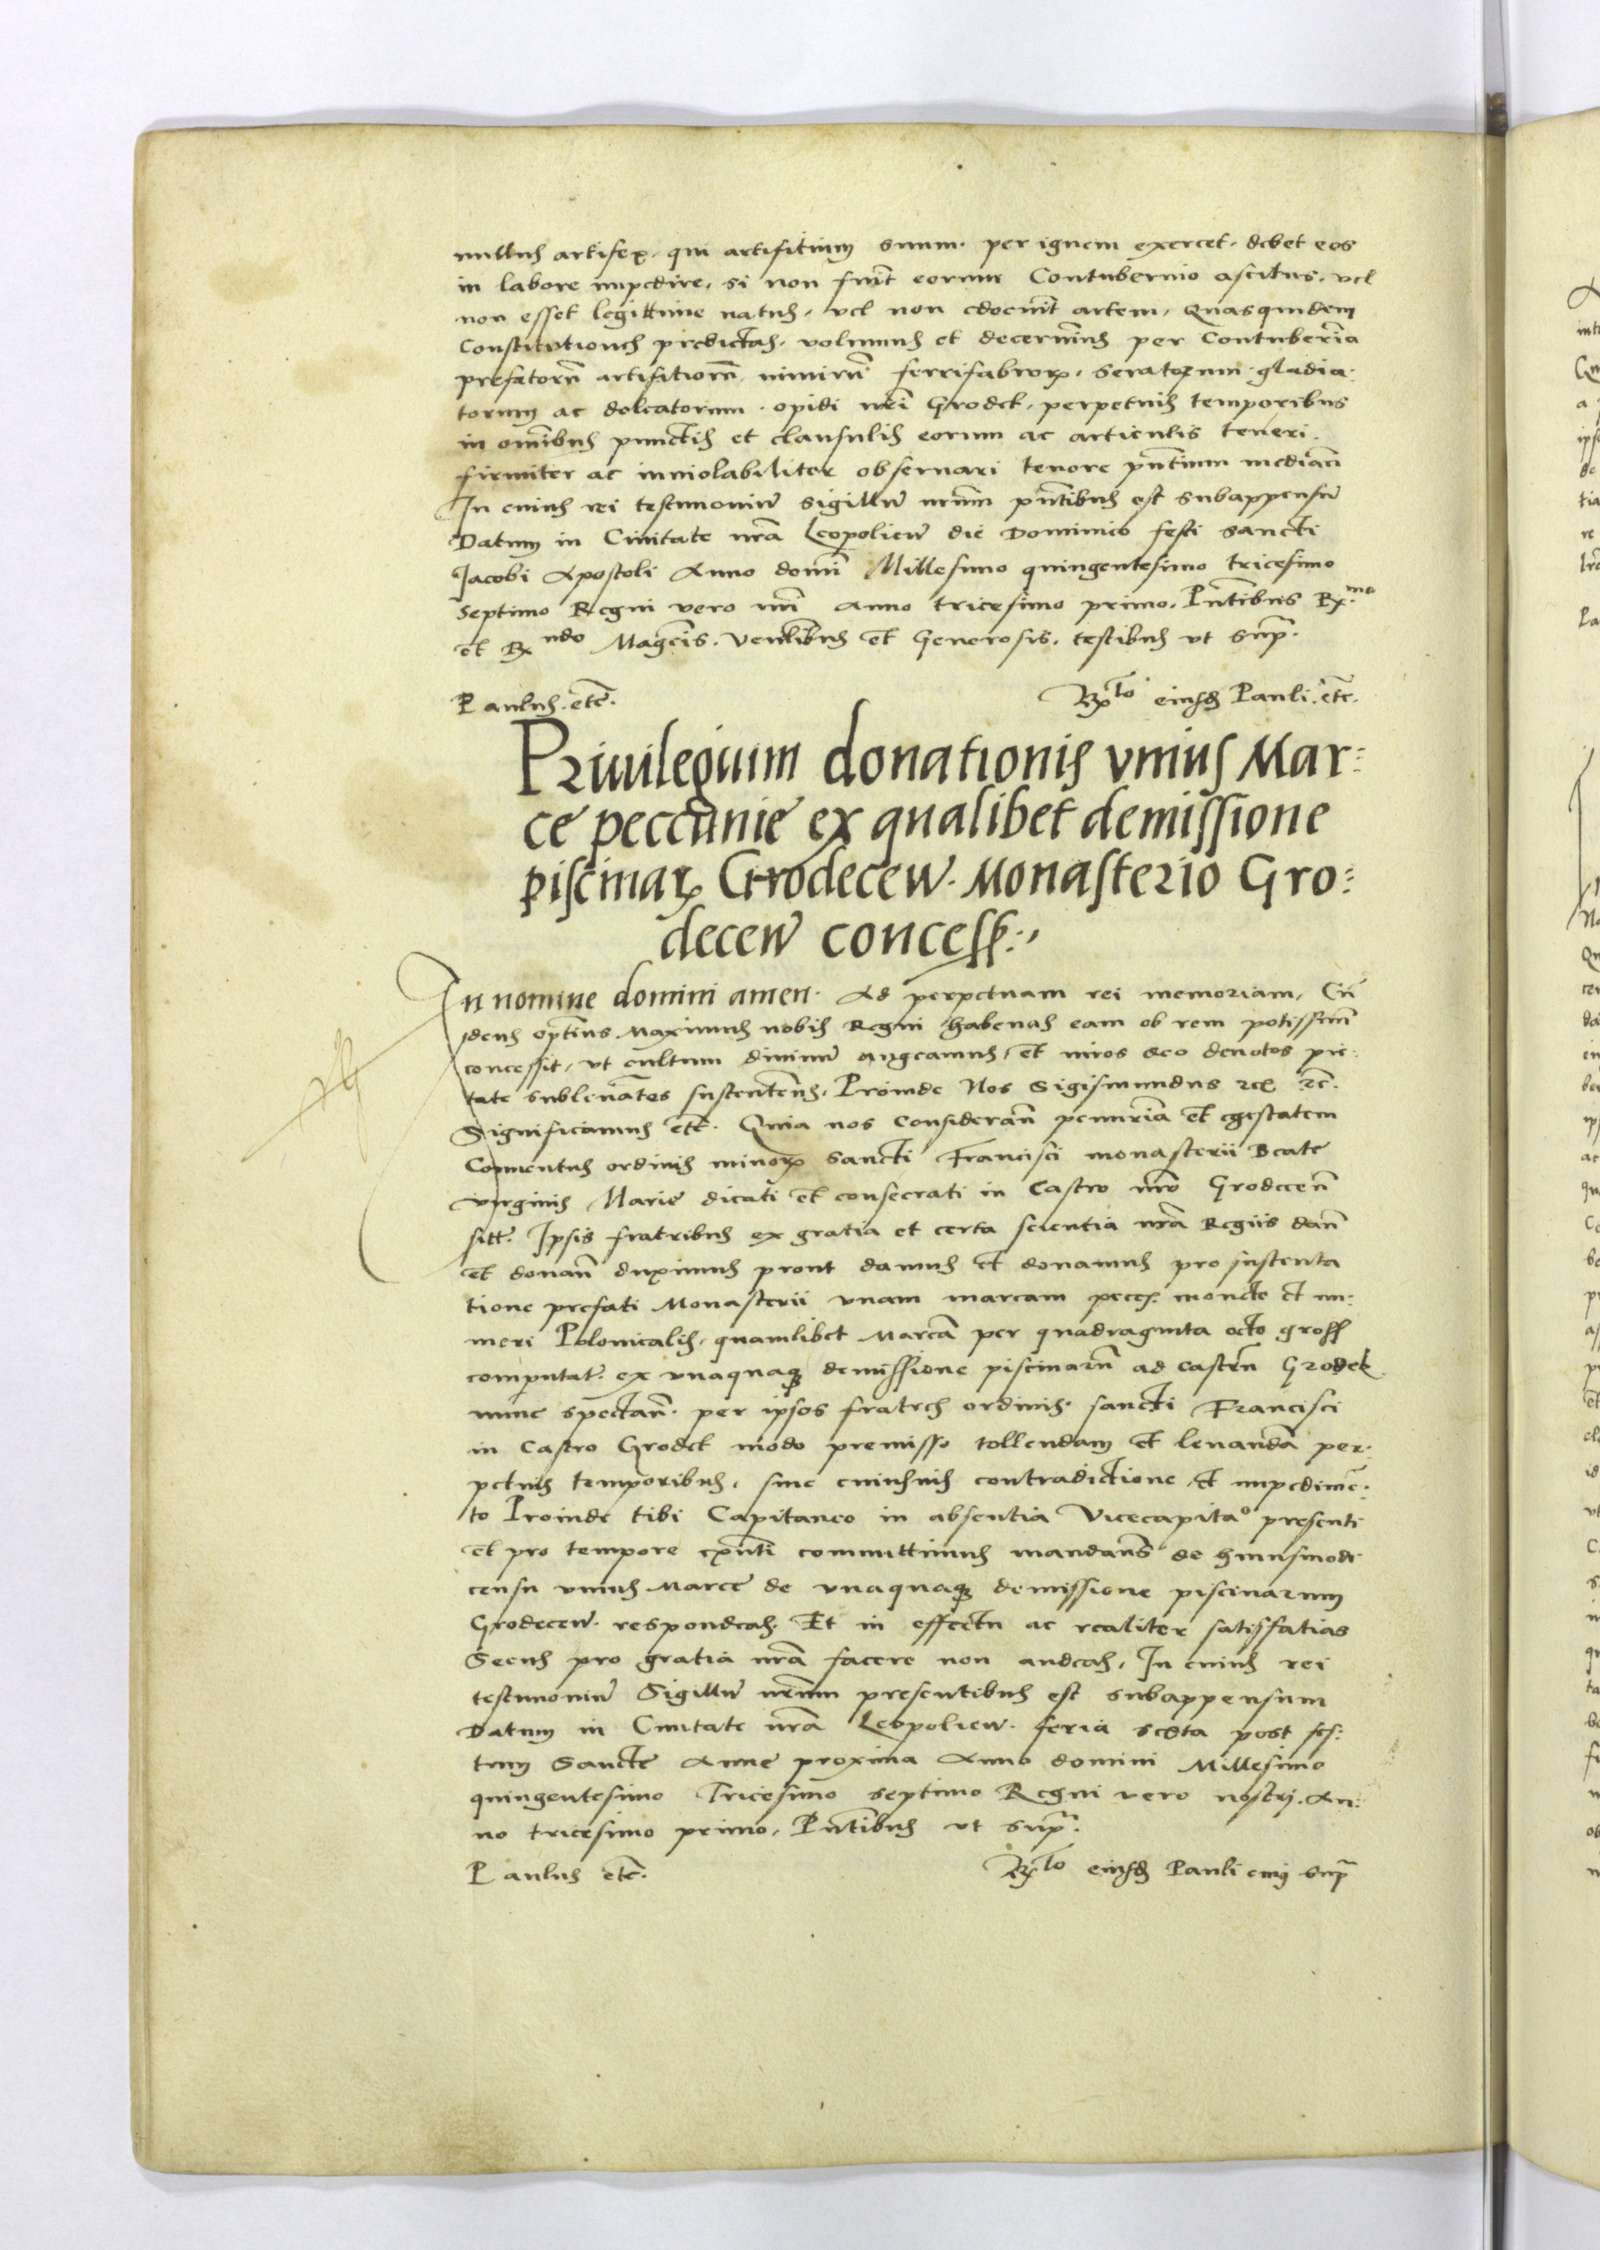 nullus artifex, qui artifitium suum per ignem exercet, debet eos
in labore impedire, si non fuerit eorum Contubernio ascitus, vel
non esset legittime natus, vel non edocuerit artem, Quasquidem
Constitutiones predictas volumus et decernimus per Contubernia
prefatorum artifitiorum nimirum ferrifabrorum, seratorum gladia-
torum ac doleatorum opidi nri Grodek, perpetuis temporibus
in omnibus punctis et clausulis eorum ac articulis teneri
firmiter ac inviolabiliter observari tenore pntium median
In cuius rei testimonium sigillum nrum pntibus est subappensum
Datum in Civitate nra Leopolien die Dominico festi sancti
Jacobi Apostoli Anno domini Millesimo quingentesimo tricesimo
septimo Regni vero nri anno tricesimo primo, Pntibus R.mo
et R ndo Magcis Venlibus et Generosis, testibus ut supra.
Paulus etc. Rlo eiusd Pauli. etc.
Privilegium donationis unius Mar:
ce peccunie ex qualibet demissione
piscinarum Grodecen. Monasterio Gro:
decen concess:
In nomine domini amen. Ad perpetuam rei memoriam, Cum
deus optimus Maximus nobis Regni habenas eam ob rem potissimum
concessit, ut cultum divinum augeamus, et viros deo devotos pie-
tate sublevantes sustentemus, Proinde Nos Sigismundus rex etc.
Significamus etc. Quia nos Consideran penuriam et egestatem
Conventus ordinis minorum sancti Francisci monasterii Beate
virginis Marie dicati et consecrati in Castro nro Grodecen
sitt. Ipsis fratribus ex gratia et certa scientia nra Regiis dan
et donan duximus prout damus et donamus pro sustenta
tione prefati Monasterii unam marcam pecce. monete et nu-
meri Polonicalis, quamlibet Marcam per quadraginta octo gross
computat. ex unaquaque demissione piscinarum ad castrum Grodek
nunc spectan. per ipsos fratres ordinis sancti Francisci
in Castro Grodek modo premisso tollendam et levandam per-
petuis temporibus, sine cuiusvis contradictione et impedimen-
to Proinde tibi Capitaneo in absentia Vicecapitao presenti
et pro tempore exnti committimus mandans de huiusmodi
censu unius Marce de unaquaque demissione piscinarum
Grodecen. respondeas. Et in effectu ac realiter satisfatias
Secus pro gratia nra facere non audeas, In cuius rei
testimonium Sigillum nrum presentibus est subappensum
Datum in Civitate nra Leopolien. feria sexta post fes:
tum Sancte Anne proxima Anno domini Millesimo
quingentesimo Tricesimo septimo Regni vero nostri An:
no tricesimo primo, Pntibus ut supra.
Paulus etc. Rlo eiusd Pauli cuius supra